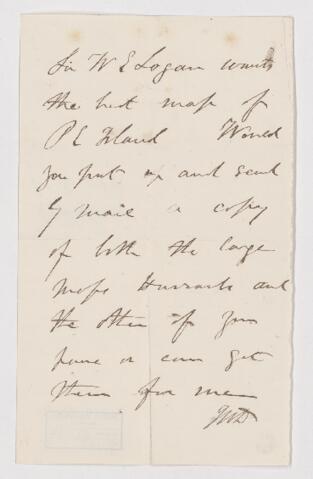 Sir W E Logan wants
the best map of
P E Island Would
you put up and send
by mail a copy
of both the large
maps and
the other if you
have or can get
them for me
JWD